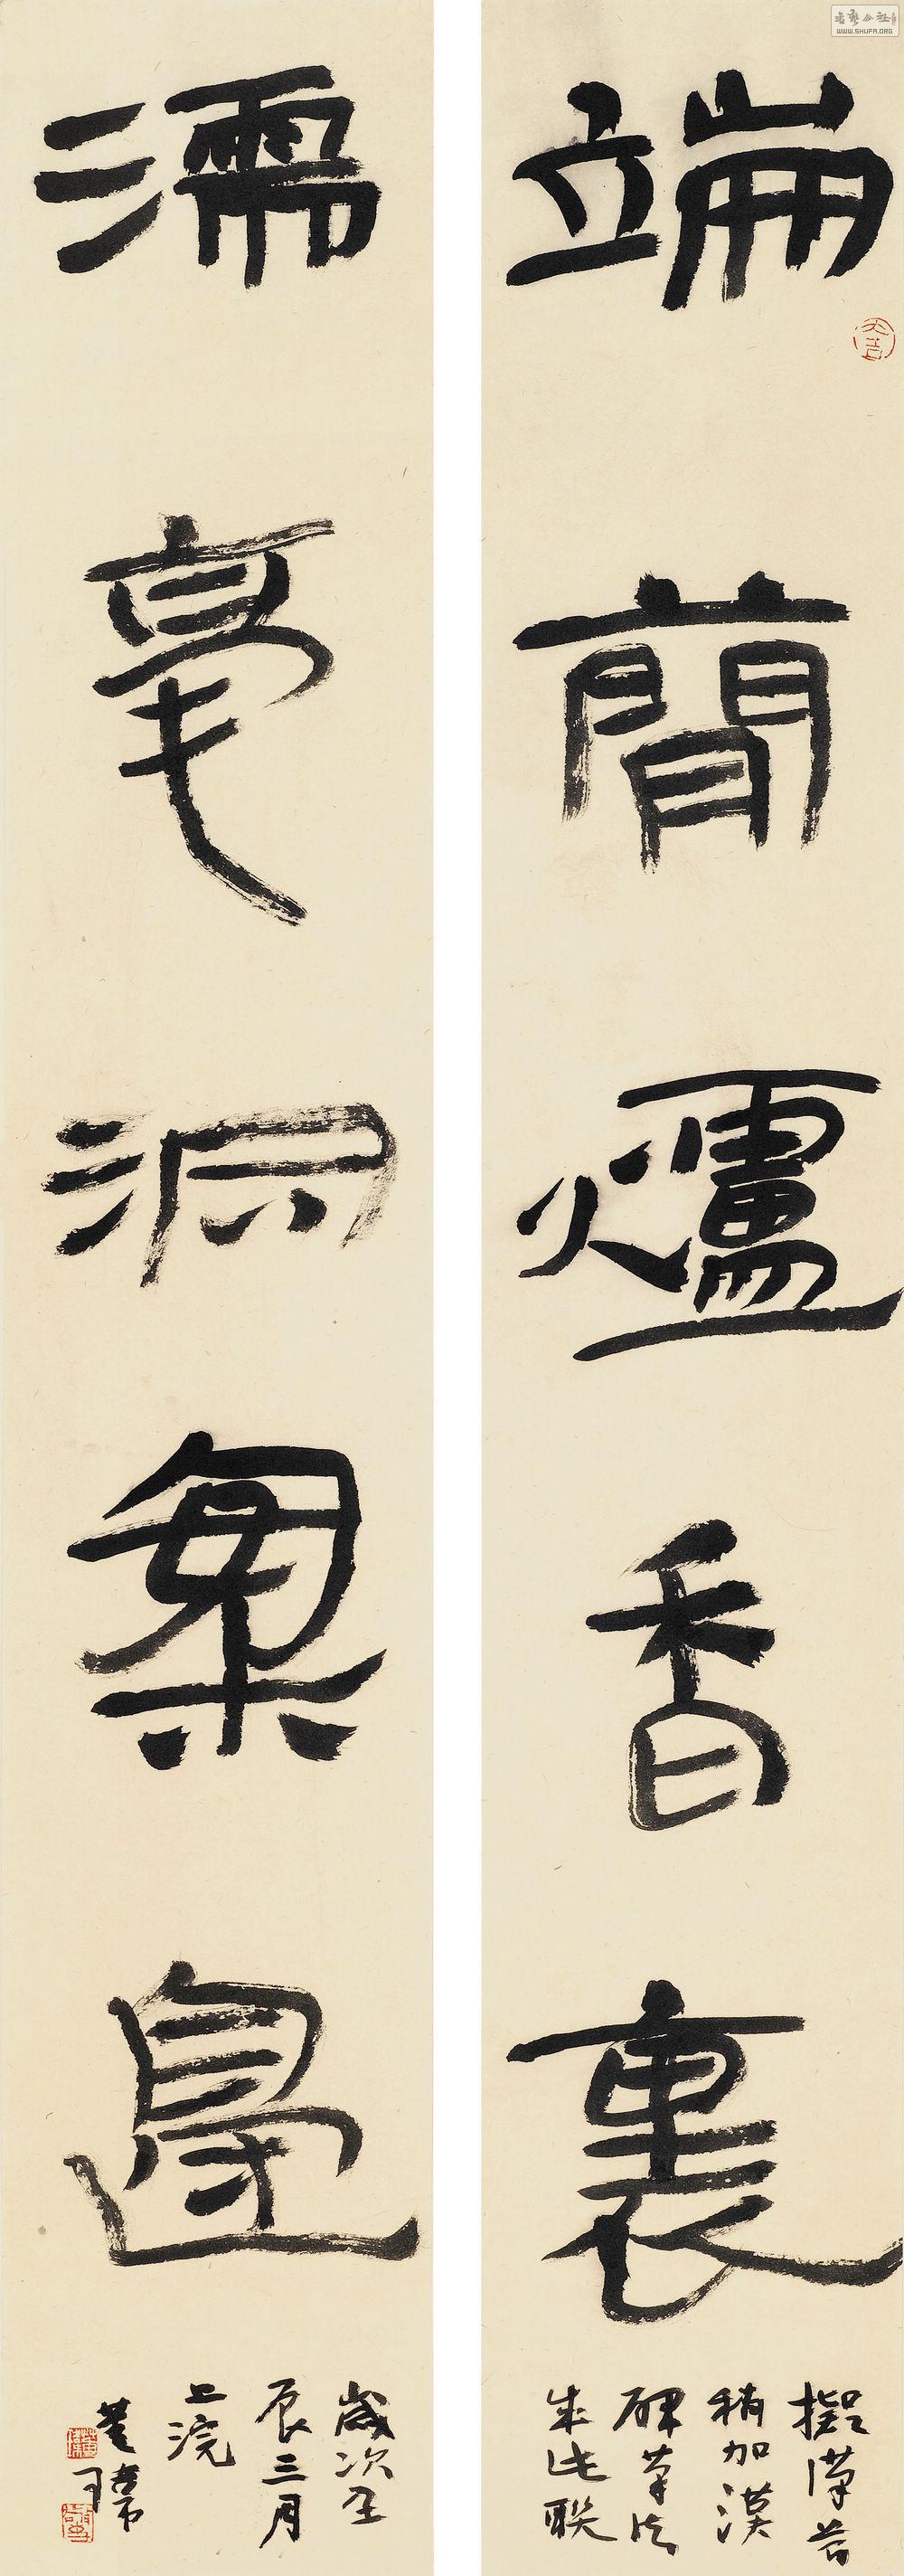 書藝公社
WWW.SHUFA.ORG
端簡爐香裏
大吉
擬漢簡
稍加漢
碑筆法
成此聯
濡毫洞案邊
歲次壬
辰三月
上浣